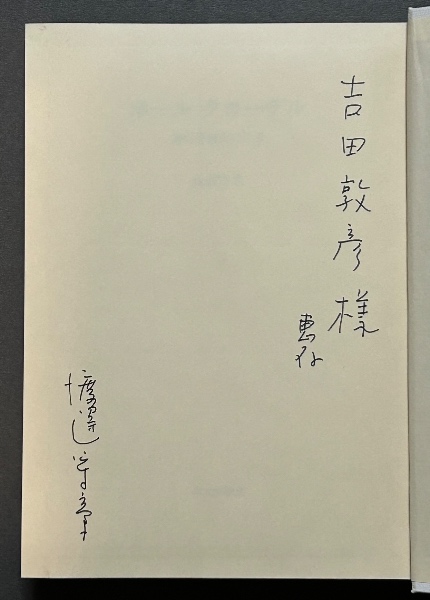 吉田敦彦様
恵存
渡邊守章